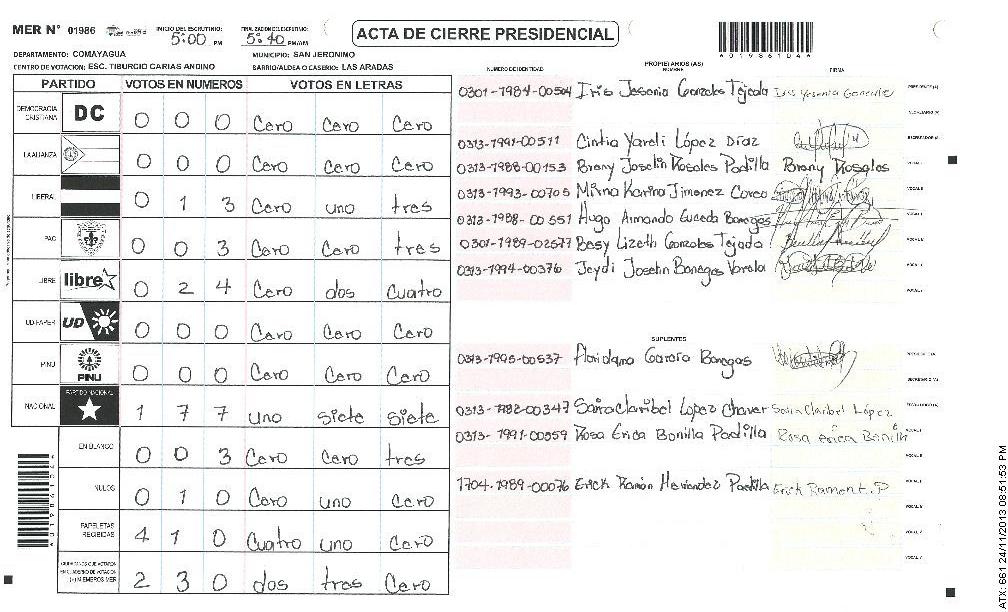 MER Nº 01986 INICIO DEL ESCRUTINIO: 5:00 PM FINALIZACION ESCRUTINIO: 5:40 PM/AM
ACTA DE CIERRE PRESIDENCIAL
DEPARTAMENTO: COMAYAGUA MUNICIPIO: SAN JERONIMO
CENTRO DE VOTACION: ESC. TIBURCIO CARIAS ANDINO BARRIO/ALDEA O CASERIO: LAS ARADAS
PARTIDO VOTOS EN NUMEROS VOTOS EN LETRAS
DEMOCRACIA CRISTIANA DC 0 0 0 Cero Cero Cero
LA ALIANZA 0 0 0 Cero Cero Cero
LIBERAL 0 1 3 Cero uno tres
PAC 0 0 3 Cero Cero tres
LIBRE libre 0 2 4 Cero dos Cuatro
UD-FAPER UD 0 0 0 Cero Cero Cero
PINU PINU 0 0 0 Cero Cero Cero
NACIONAL PARTIDO NACIONAL 1 7 7 uno siete siete
EN BLANCO 0 0 3 Cero Cero tres
NULOS 0 1 0 Cero uno Cero
PAPELETAS RECIBIDAS 4 1 0 Cuatro uno Cero
CIUDADANOS QUE VOTARON EN CUADERNO DE VOTACION (+) MIEMBROS MER 2 3 0 dos tres Cero
NUMERO DE IDENTIDAD PROPIETARIOS (AS) NOMBRE FIRMA
0301-1984-00504 Iris Jesenia Gonzales Tejada Iris Yesenia Gonzalez PRESIDENTE (A)
SECRETARIO (A)
0313-1991-00511 Cintia Yareli López Díaz ESCRUTADOR (A)
0313-1988-00153 Brany Joselin Rosales Padilla Brany Rosales
0313-1993-00705 Mirna Karina Jimenez
0313-1988-00551 Hugo Armando Banegas
0301-1989-02677 Besy Lizeth Gonzales Tejada
0313-1994-00376 Jeydi Joselin Banegas Varela
SUPLENTES
0313-1995-00537 Banegas
Lopez Saira Claribel López
0313-1991-00359 Rosa Erica Bonilla Padilla Rosa Erica Bonilla
1704-1989-00076 Erick Ramón Padilla
A01986104A
ATX: 661 24/11/2013 08:51:53 PM